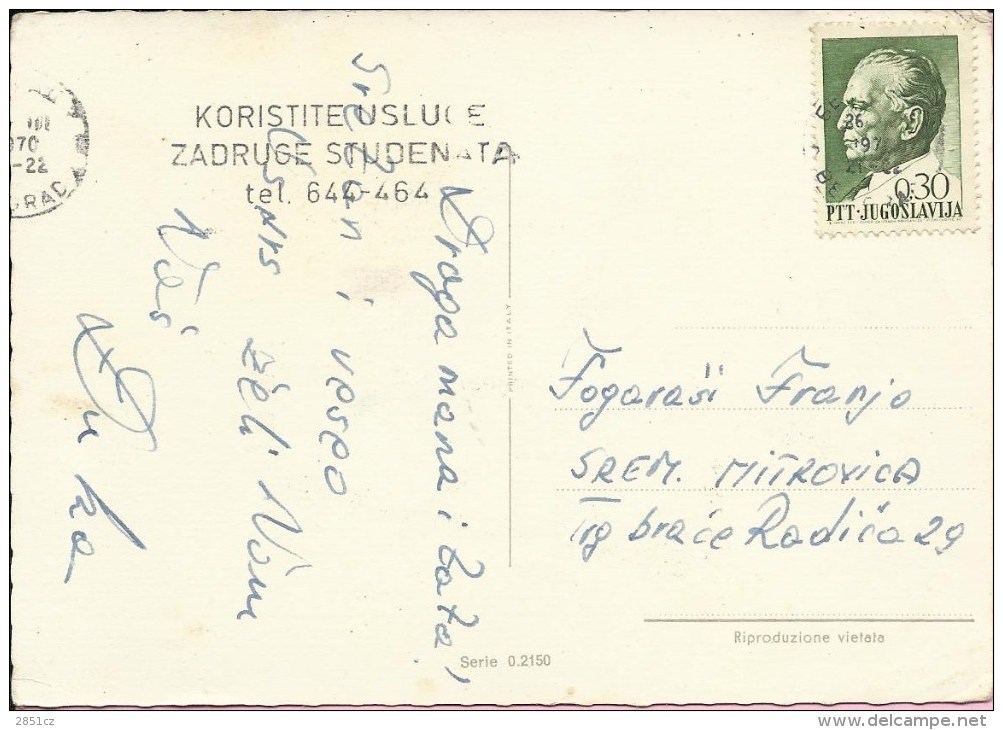 KORISTITE USLUGE
ZADRUGE STUDENATA
tel. 644-464
970
-22
GRAD
26
197
21-22
0,30
PTT·JUGOSLAVIJA
Draga mama i tata,
Srećan i veseo
Uskrs želi Vam
Vaš
PRINTED IN ITALY
Fogaraši Franjo
SREM. MITROVICA
Trg braće Radića 29
Riproduzione vietata
Serie 0.2150
2851cz
delcampe.net